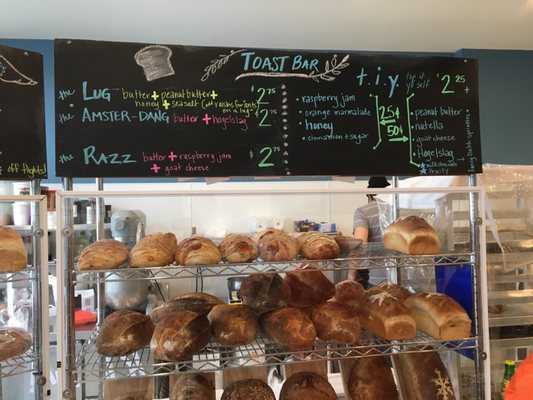 TOAST BAR
the LUG butter + peanut butter + $2.75
honey + sea salt (add raisins for "ants on a lug")
the AMSTER-DANG butter + hagelslag $2.75
the RAZZ butter + raspberry jam + goat cheese $2.75
raspberry jam
orange marmalade
honey
cinnamon + sugar
t.i.y. $2.25
25¢
50¢
peanut butter
nutella
goat cheese
Hagelslag
milk chocolate
fruity
Dutch sprinkles
off flights!